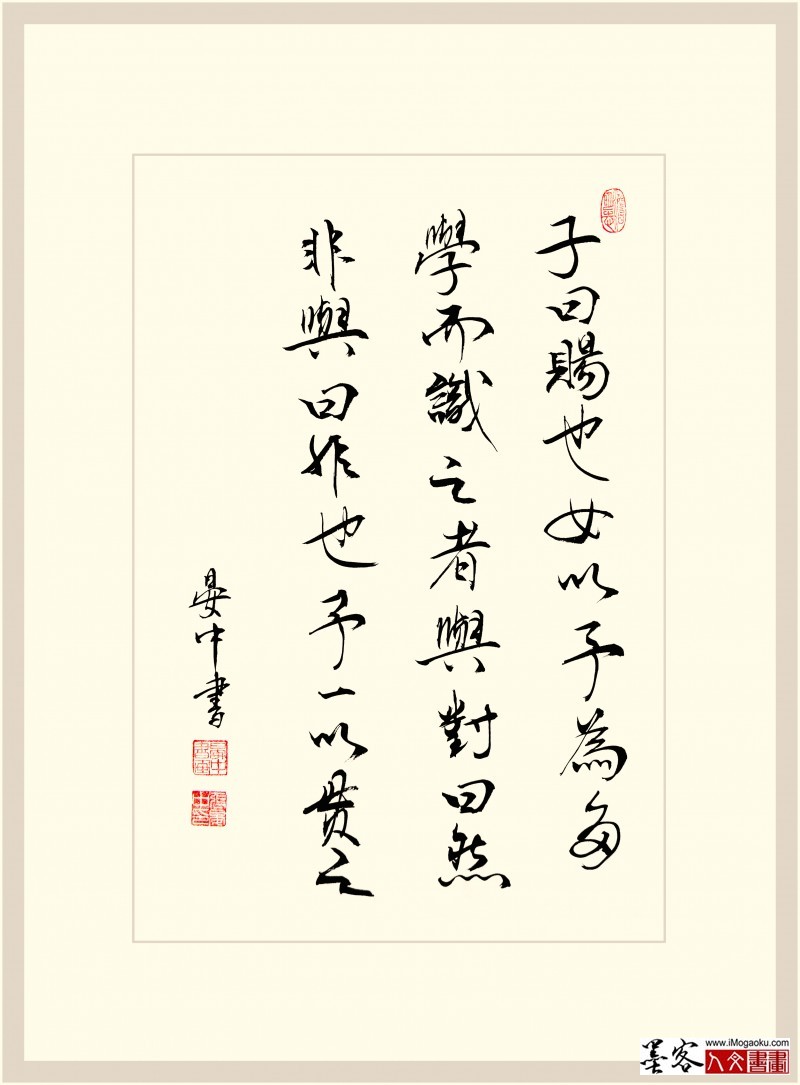 子曰賜也女以予為多
學而識之者與對曰然
非與曰非也予一以貫之
晏中書
墨客
www.iMogaoku.com
人文書畫